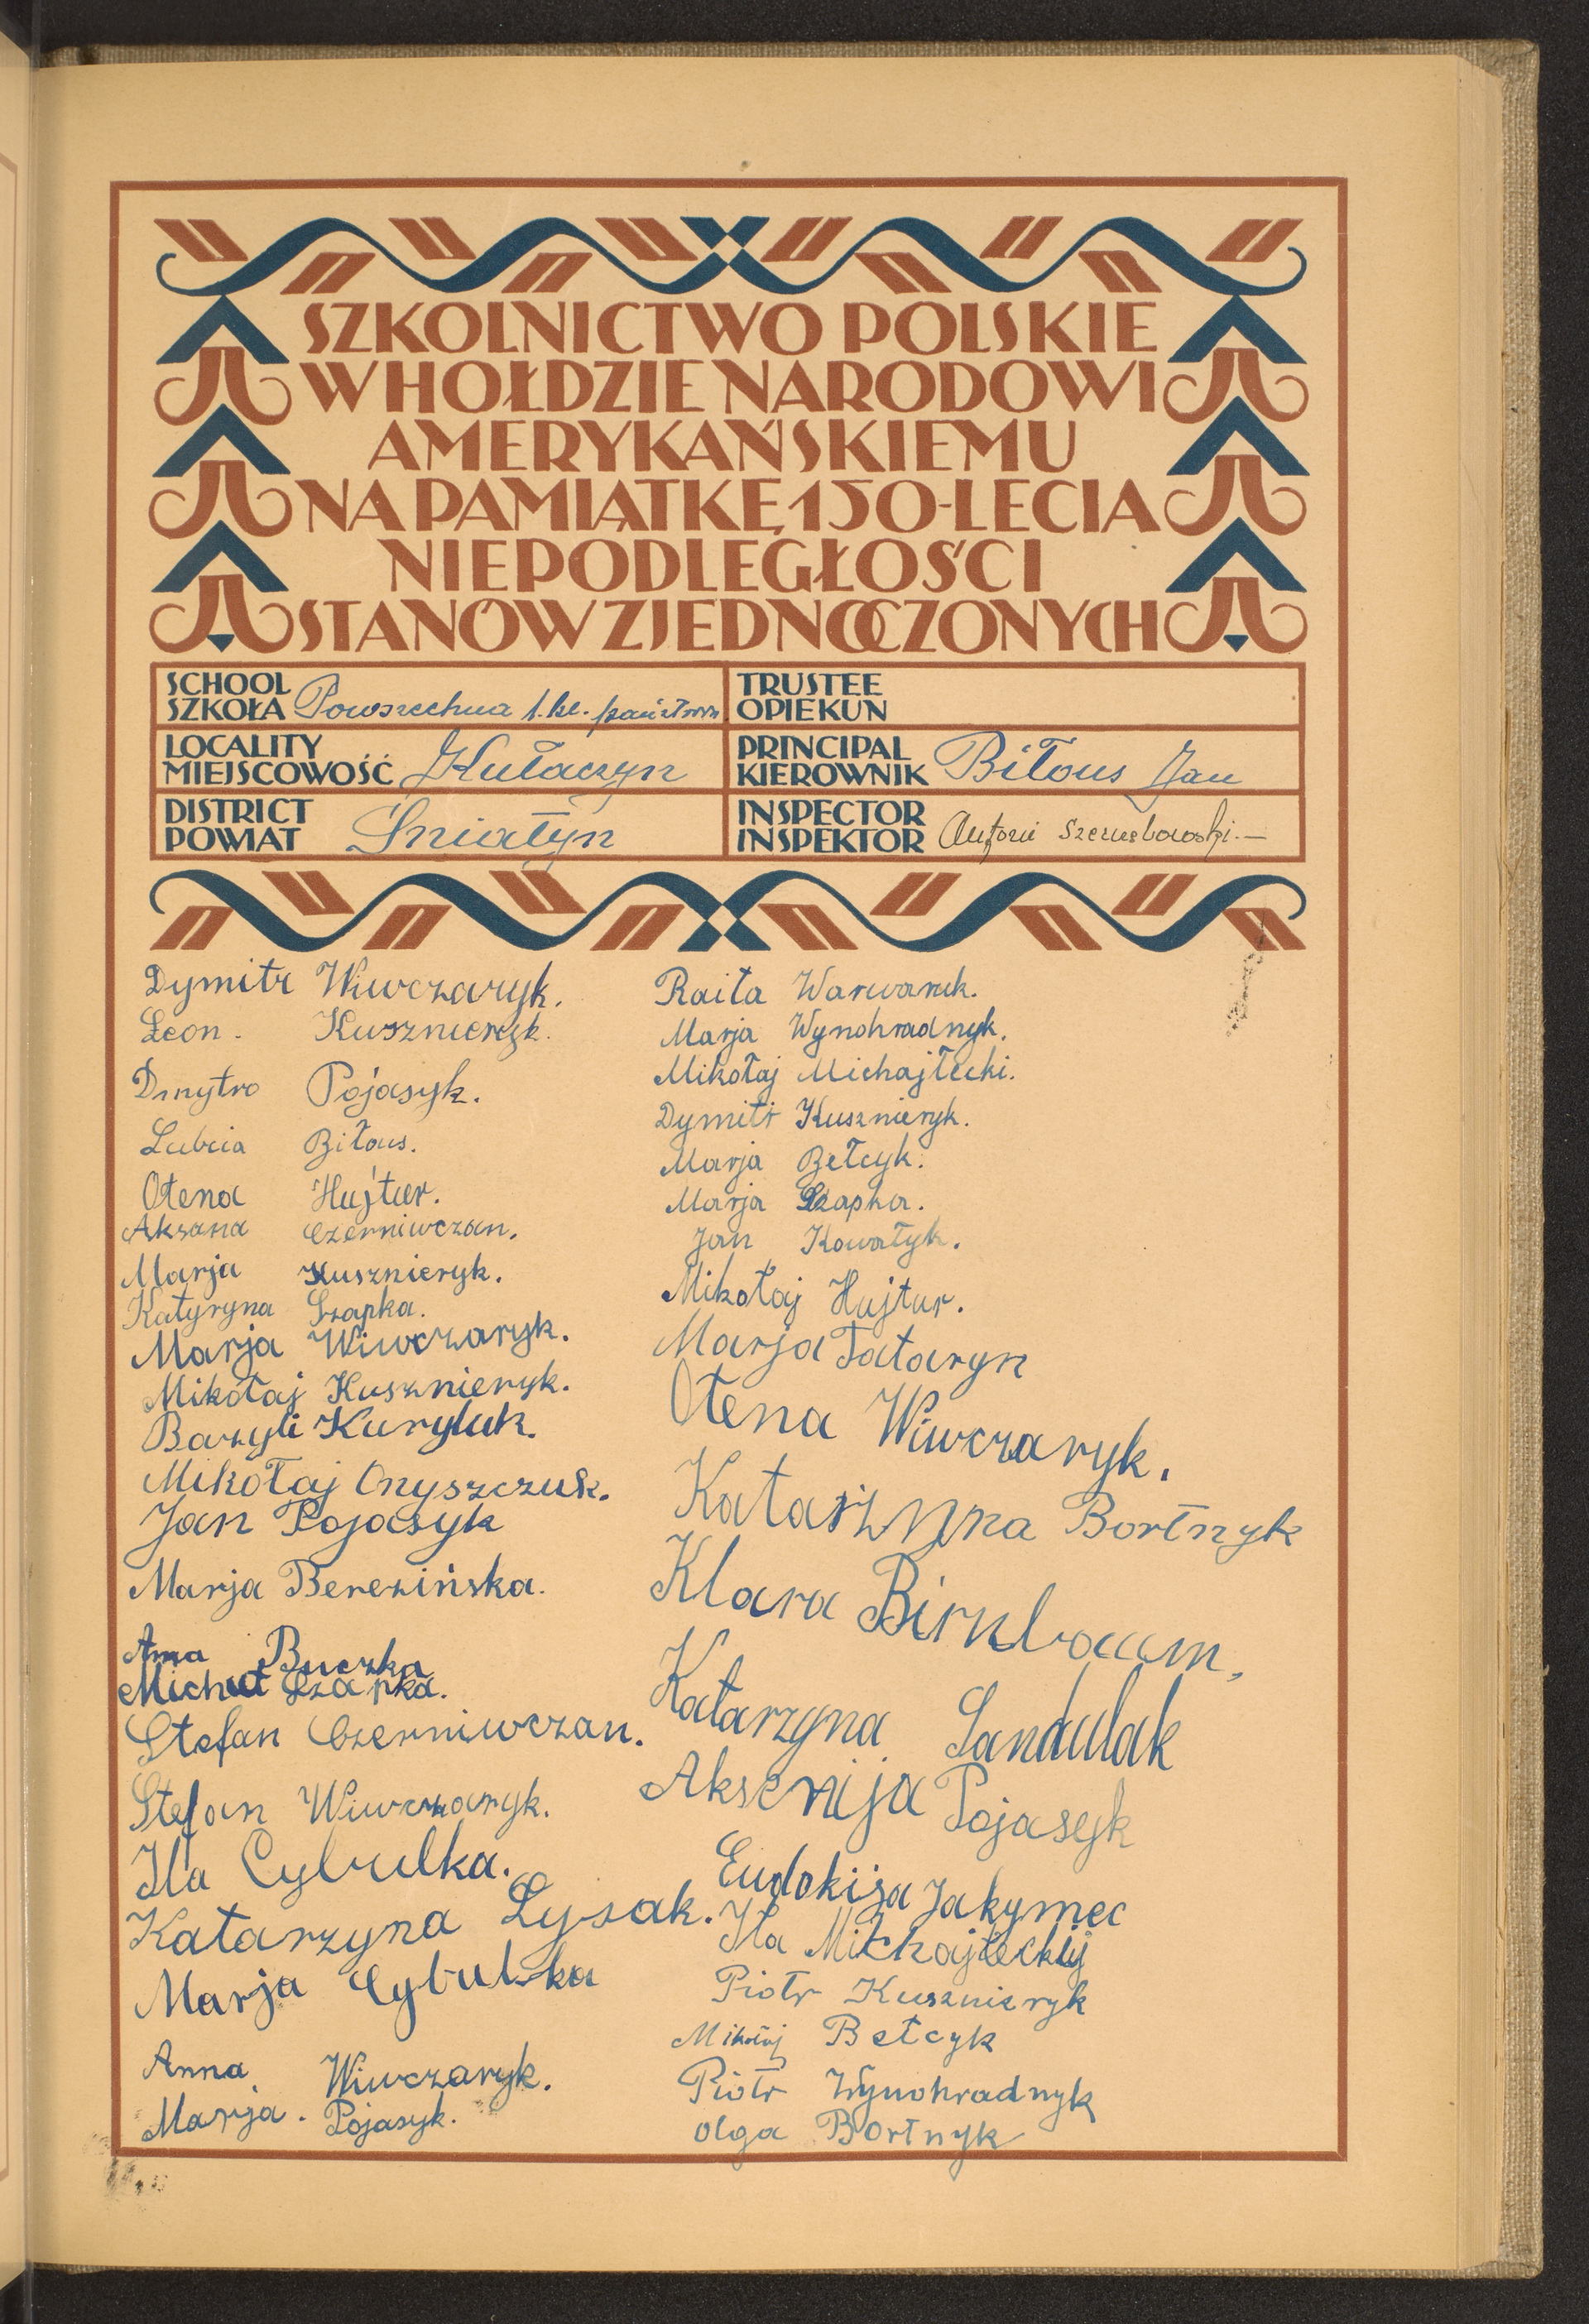 SZKOLNICTWO POLSKIE
W HOŁDZIE NARODOWI
AMERYKAŃSKIEMU
NA PAMIĄTKĘ 150-LECIA
NIEPODLEGŁOŚCI
STANÓW ZJEDNOCZONYCH
SCHOOL
SZKOŁA Powszechna 1. kl. państwow
TRUSTEE
OPIEKUN
LOCALITY
MIEJSCOWOŚĆ Kułaczyn
PRINCIPAL
KIEROWNIK Biłous Jan
DISTRICT
POWIAT Śniatyn
INSPECTOR
INSPEKTOR Antoni
Dymitr Wiwczaryk.
Leon. Kusznieryk.
Dmytro Pojasyk.
Lubcia Biłous.
Ołena Hujtur.
Aksana Czerniwczan.
Marja Kusznieryk.
Katyryna Szapka.
Marja Wiwczaryk.
Mikołaj Kusznieryk.
Bazyli Kuryluk.
Mikołaj Onyszczuk.
Jan Pojasyk
Marja Berezińska.
Anna Buczka
Michał Szapka.
Stefan Czerniwczan.
Stefan Wiwczaryk.
Ila Cybulka.
Katarzyna Łysak.
Marja Cybulska
Anna Wiwczaryk.
Marja. Pojasyk.
Raiła Warwaruk.
Marja Wynohradnyk.
Mikołaj Michajłecki.
Dymitr Kusznieryk.
Marja Bełcyk.
Marja Szapka.
Jan Kowałyk.
Mikołaj Hujtur.
Marja Tataryn
Ołena Wiwczaryk.
Katarzyna Bortnyk
Klara Birnbaum,
Katarzyna Sandulak
Aksenija Pojasyk
Eudokija Jakymec
Ila Michajłeckij
Piotr Kusznieryk
Mikołaj Bełcyk
Piotr Wynohradnyk
Olga Bortnyk